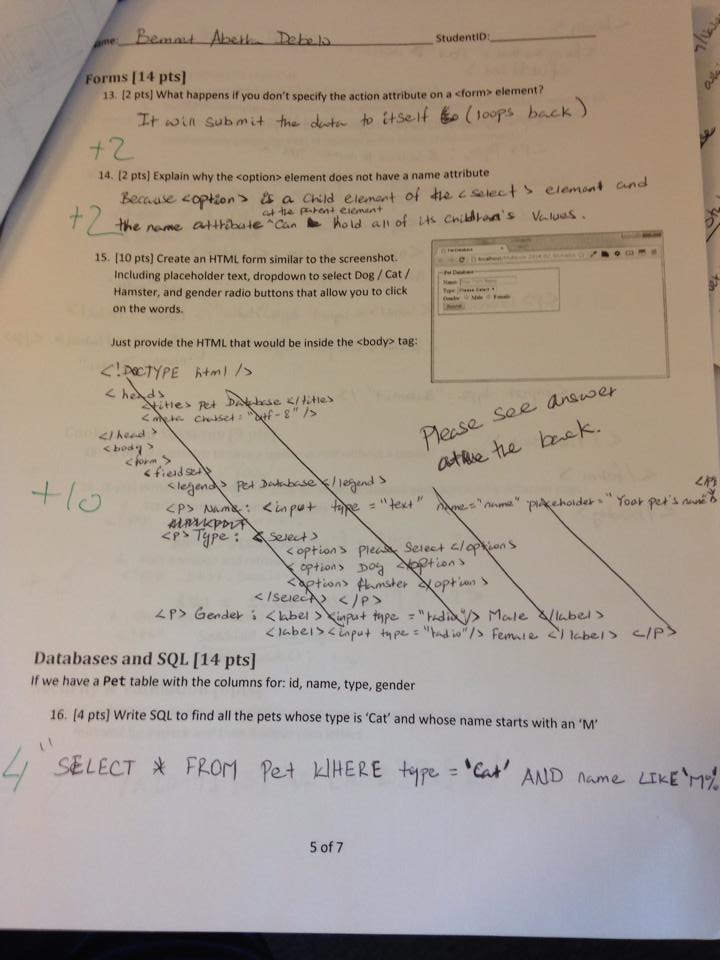 ame: Bemnet Aberra Debelo StudentID:
Forms [14 pts]
13. [2 pts] What happens if you don't specify the action attribute on a <form> element?
It will submit the data to itself (loops back)
+2
14. [2 pts] Explain why the <option> element does not have a name attribute
Because <option> is a child element of the <select> element and
at the parent element
+2 the name attribute ^ can hold all of its children's values.
15. [10 pts] Create an HTML form similar to the screenshot.
Including placeholder text, dropdown to select Dog / Cat /
Hamster, and gender radio buttons that allow you to click
on the words.
Pet Database
Name:
Type: Please Select
Gender: Male Female
Just provide the HTML that would be inside the <body> tag:
<!DOCTYPE html />
<head>
<title> Pet Database </title>
<meta charset="utf-8" />
</head>
<body>
<form>
<fieldset>
Please see answer
at the back.
<legend> Pet Database </legend>
+10
<P> Name: <input type = "text" name="name" placeholder="Your pet's name">
<P> Type: <select>
<option> Please Select </option>
<option> Dog </option>
<option> Hamster </option>
</select> </P>
<P> Gender: <label> <input type = "radio"/> Male </label>
<label> <input type = "radio"/> Female </label> </P>
Databases and SQL [14 pts]
If we have a Pet table with the columns for: id, name, type, gender
16. [4 pts] Write SQL to find all the pets whose type is 'Cat' and whose name starts with an 'M'
4 "SELECT * FROM Pet WHERE type = 'Cat' AND name LIKE 'M%
5 of 7